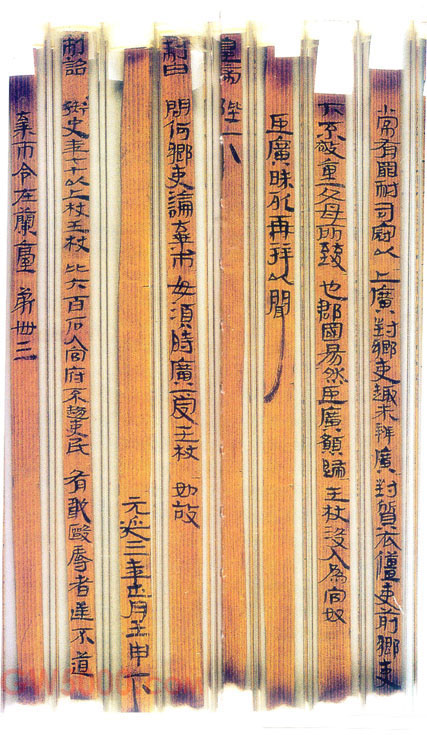 常有罪耐司寇以上廣對鄉吏趣未辨廣對質衣僵吏前鄉吏
下不敬重父母所致也郡國易然臣廣願歸王杖沒入為官奴
臣廣昧死再拜以聞
皇帝陛下
制曰問何鄉吏論棄市毋須時廣受王杖如故
元延三年正月壬申下
制詔御史年七十以上杖王杖比六百石入官府不趨吏民有敢毆辱者逆不道
棄市令在蘭臺第卌三